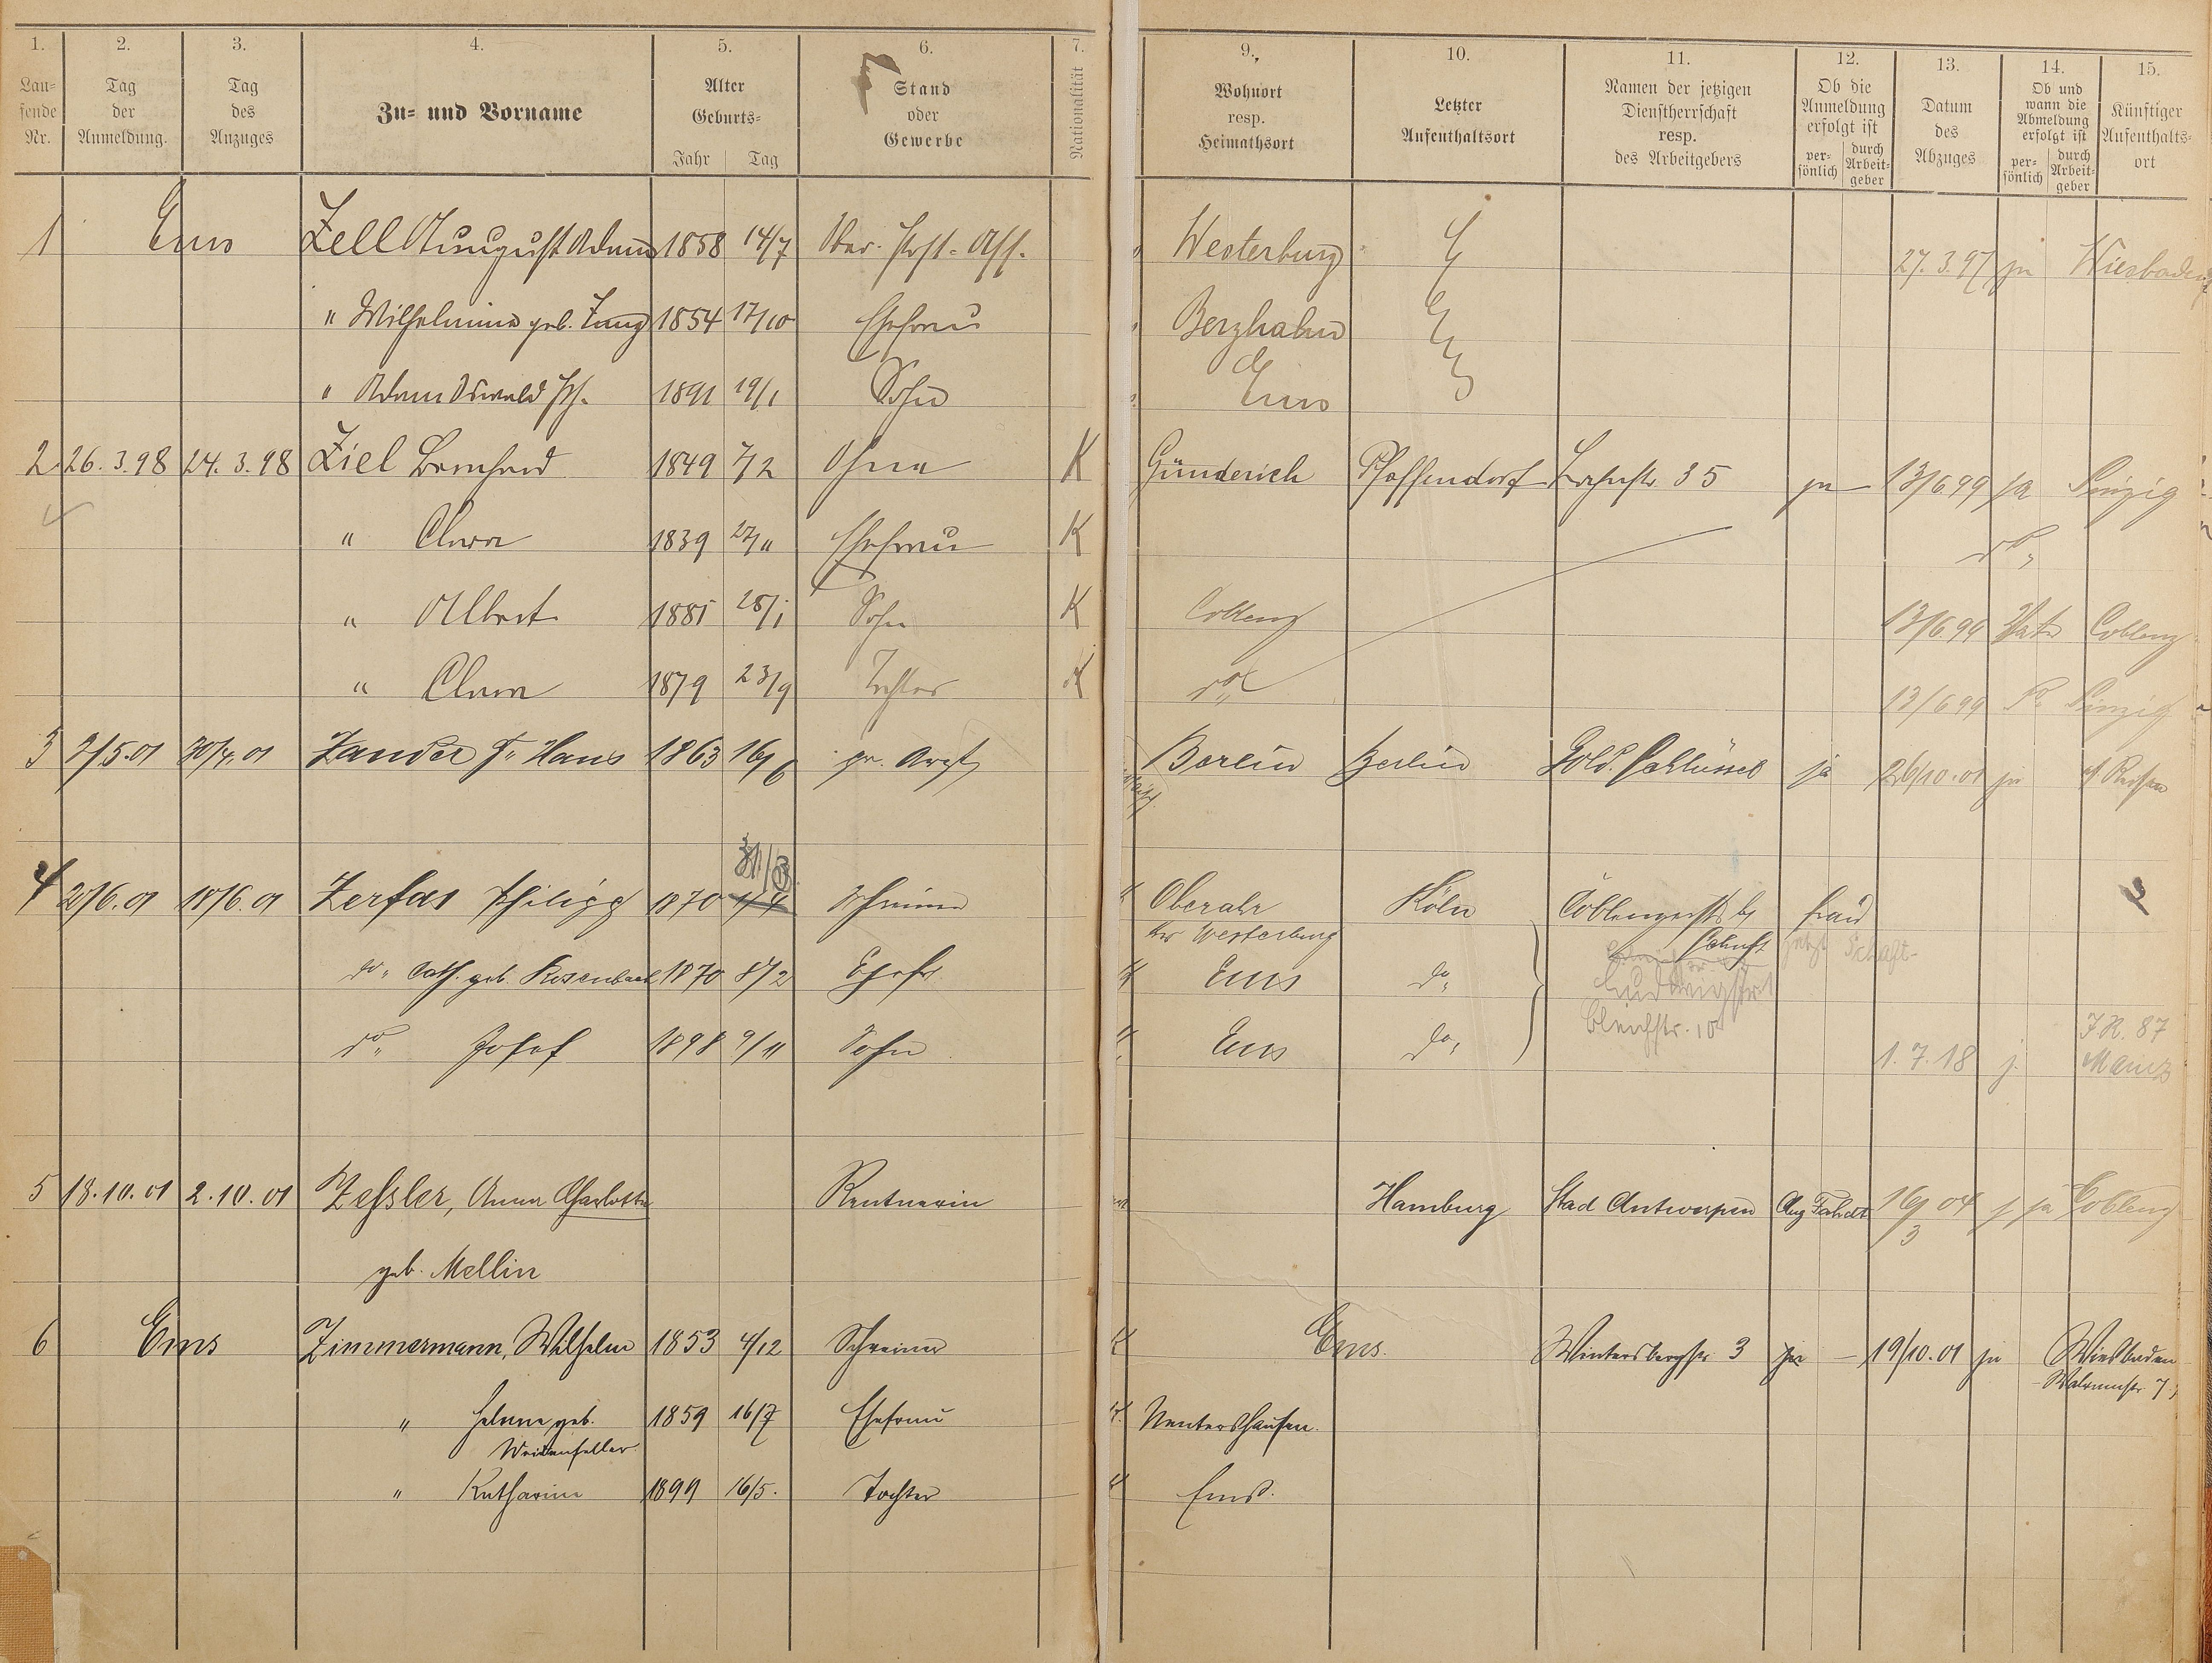 1. 2. 3. 4. 5. 6. 7. 9. 10. 11. 12. 13. 14. 15.
Lau-
fende
Nr.
Tag
der
Anmeldung.
Tag
des
Anzuges
Zu- und Vorname
Alter
Geburts-
Jahr Tag
Stand
oder
Gewerbe
Nationalität
Wohnort
resp.
Heimathsort
Letzter
Aufenthaltsort
Namen der jetzigen
Dienstherrschaft
resp.
des Arbeitgebers
Ob die
Anmeldung
erfolgt ist
per-
sönlich
durch
Arbeit-
geber
Datum
des
Abzuges
Ob und
wann die
Abmeldung
erfolgt ist
per-
sönlich
durch
Arbeit-
geber
Künftiger
Aufenthalts-
ort
1 Ems Zell August Adam 1858 14/7 Ober-Post-Ass. Westerburg 27.3.97 ja Wiesbaden
" Wilhelmine geb. Jung 1854 17/10 Ehefrau Berzhahn
" Adam Oswald 1891 19/1 Sohn Ems
2 26.3.98 24.3.98 Ziel Bernhard 1849 7/2 Ohne K Günderich Pfaffendorf Lahnstr. 35 ja 13/6 99 ja Sinzig
" Clara 1839 27/11 Ehefrau K do
" Albert 1881 28/1 Sohn K Coblenz 13/6 99 Coblenz
" Clara 1879 23/9 Tochter K do 13/6 99 Sinzig
3 2/5.01 30/4.01 Zander Hans 1863 16/6 pr. Arzt Berlin Berlin Gold. Schlüssel ja 26/10.01 ja a/ Reisen
31/3
4 20/6.01 18/6.01 Zerfas Philipp 1870 Schreiner Oberahr Köln Coblenzerstr.
bei Westerburg
do. Cath. geb. Rosenbach 1870 8/2 Ehefr. Ems do.
Ludwigstr.
do. Josef 1898 9/11 Sohn Ems do. Bleichstr. 10 1.7.18 j. J.R. 87
Mainz
5 18.10.01 2.10.01 Zessler, Anna Charlotte Rentnerin Hamburg Stad Antwerpen 16/3 04 ja Coblenz
geb. Mellin
6 Ems Zimmermann, Wilhelm 1853 4/12 Schreiner Ems. Wintersbergstr. 3 ja – 19/10.01 ja Wiesbaden
Walramstr. 7
" Helene geb. 1859 16/7 Ehefrau Nentershausen.
Weidenfeller
" Katharina 1899 16/5. Tochter Ems.